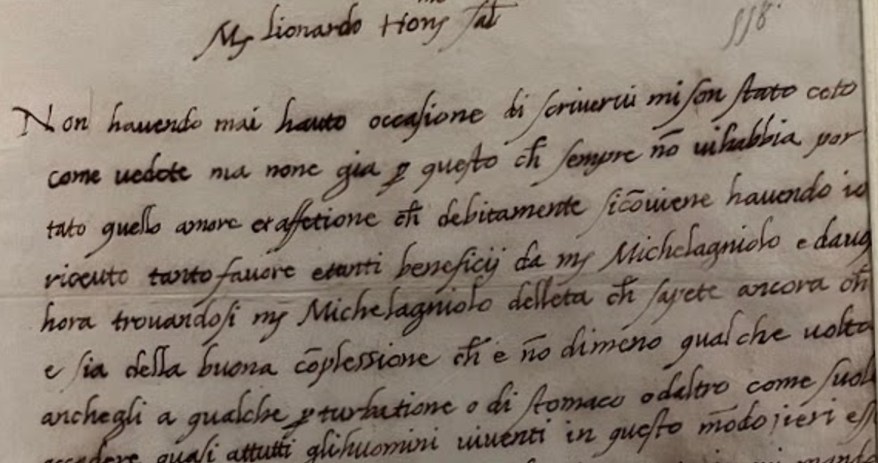 Mʃ Lionardo Hon.mo Sal̃
118.
Non hauendo mai hauto occasione di scriuerui mi son stato coto
come uedete ma none gia ꝑ questo ch̃ sempre nõ uihabbia por
tato quello amore et affetione ch̃ debitamente sicõuiene hauendo io
riceuto tanto fauore etanti beneficij da mʃ Michelagniolo e da
hora trouandosi mʃ Michelagniolo delleta ch̃ sapete ancora ch̃
e sia della buona cõplessione ch̃ e nõ dimeno qualche uolta
anchegli a qualche ꝑturbatione o di stomaco odaltro come suol
accadere quasi attutti glihuomini uiuenti in questo mõdo ieri